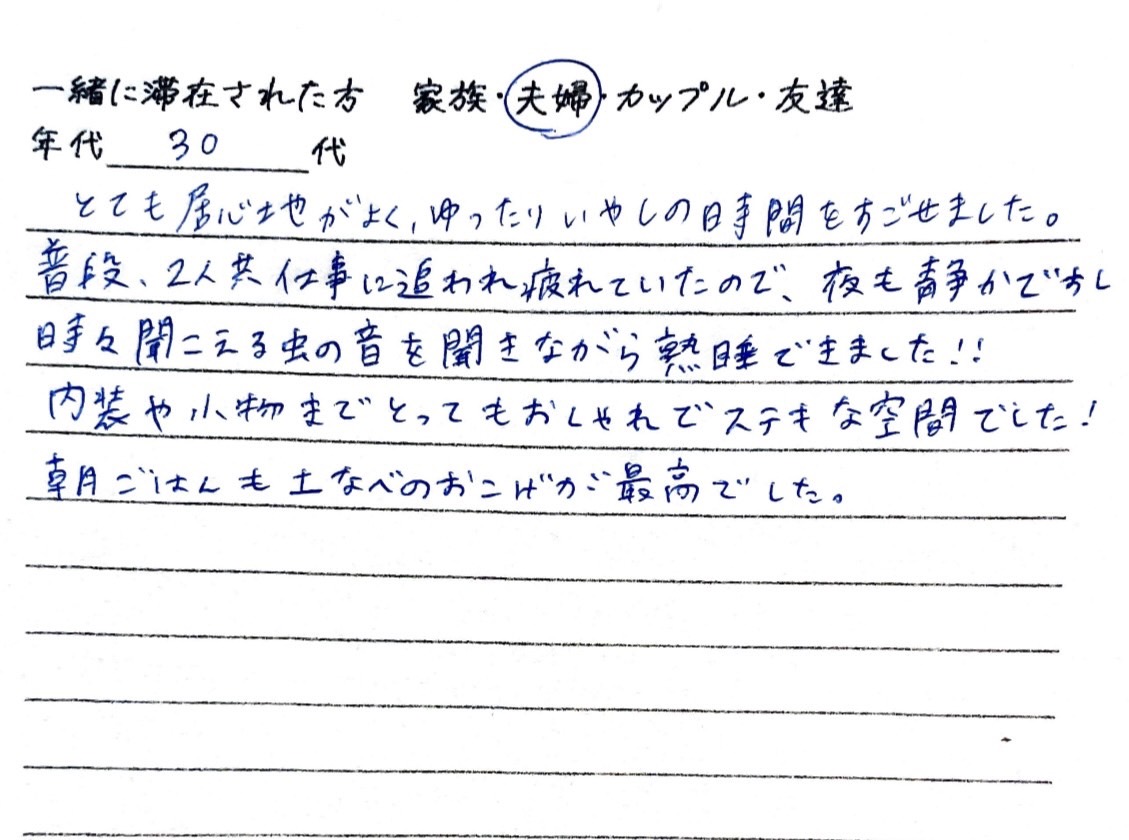 一緒に滞在された方 家族・夫婦・カップル・友達
年代 30 代
とても居心地がよく、ゆったりいやしの時間をすごせました。
普段、2人共仕事に追われ疲れていたので、夜も静かですし
時々聞こえる虫の音を聞きながら熟睡できました!!
内装や小物までとってもおしゃれでステキな空間でした!
朝ごはんも土なべのおこげが最高でした。